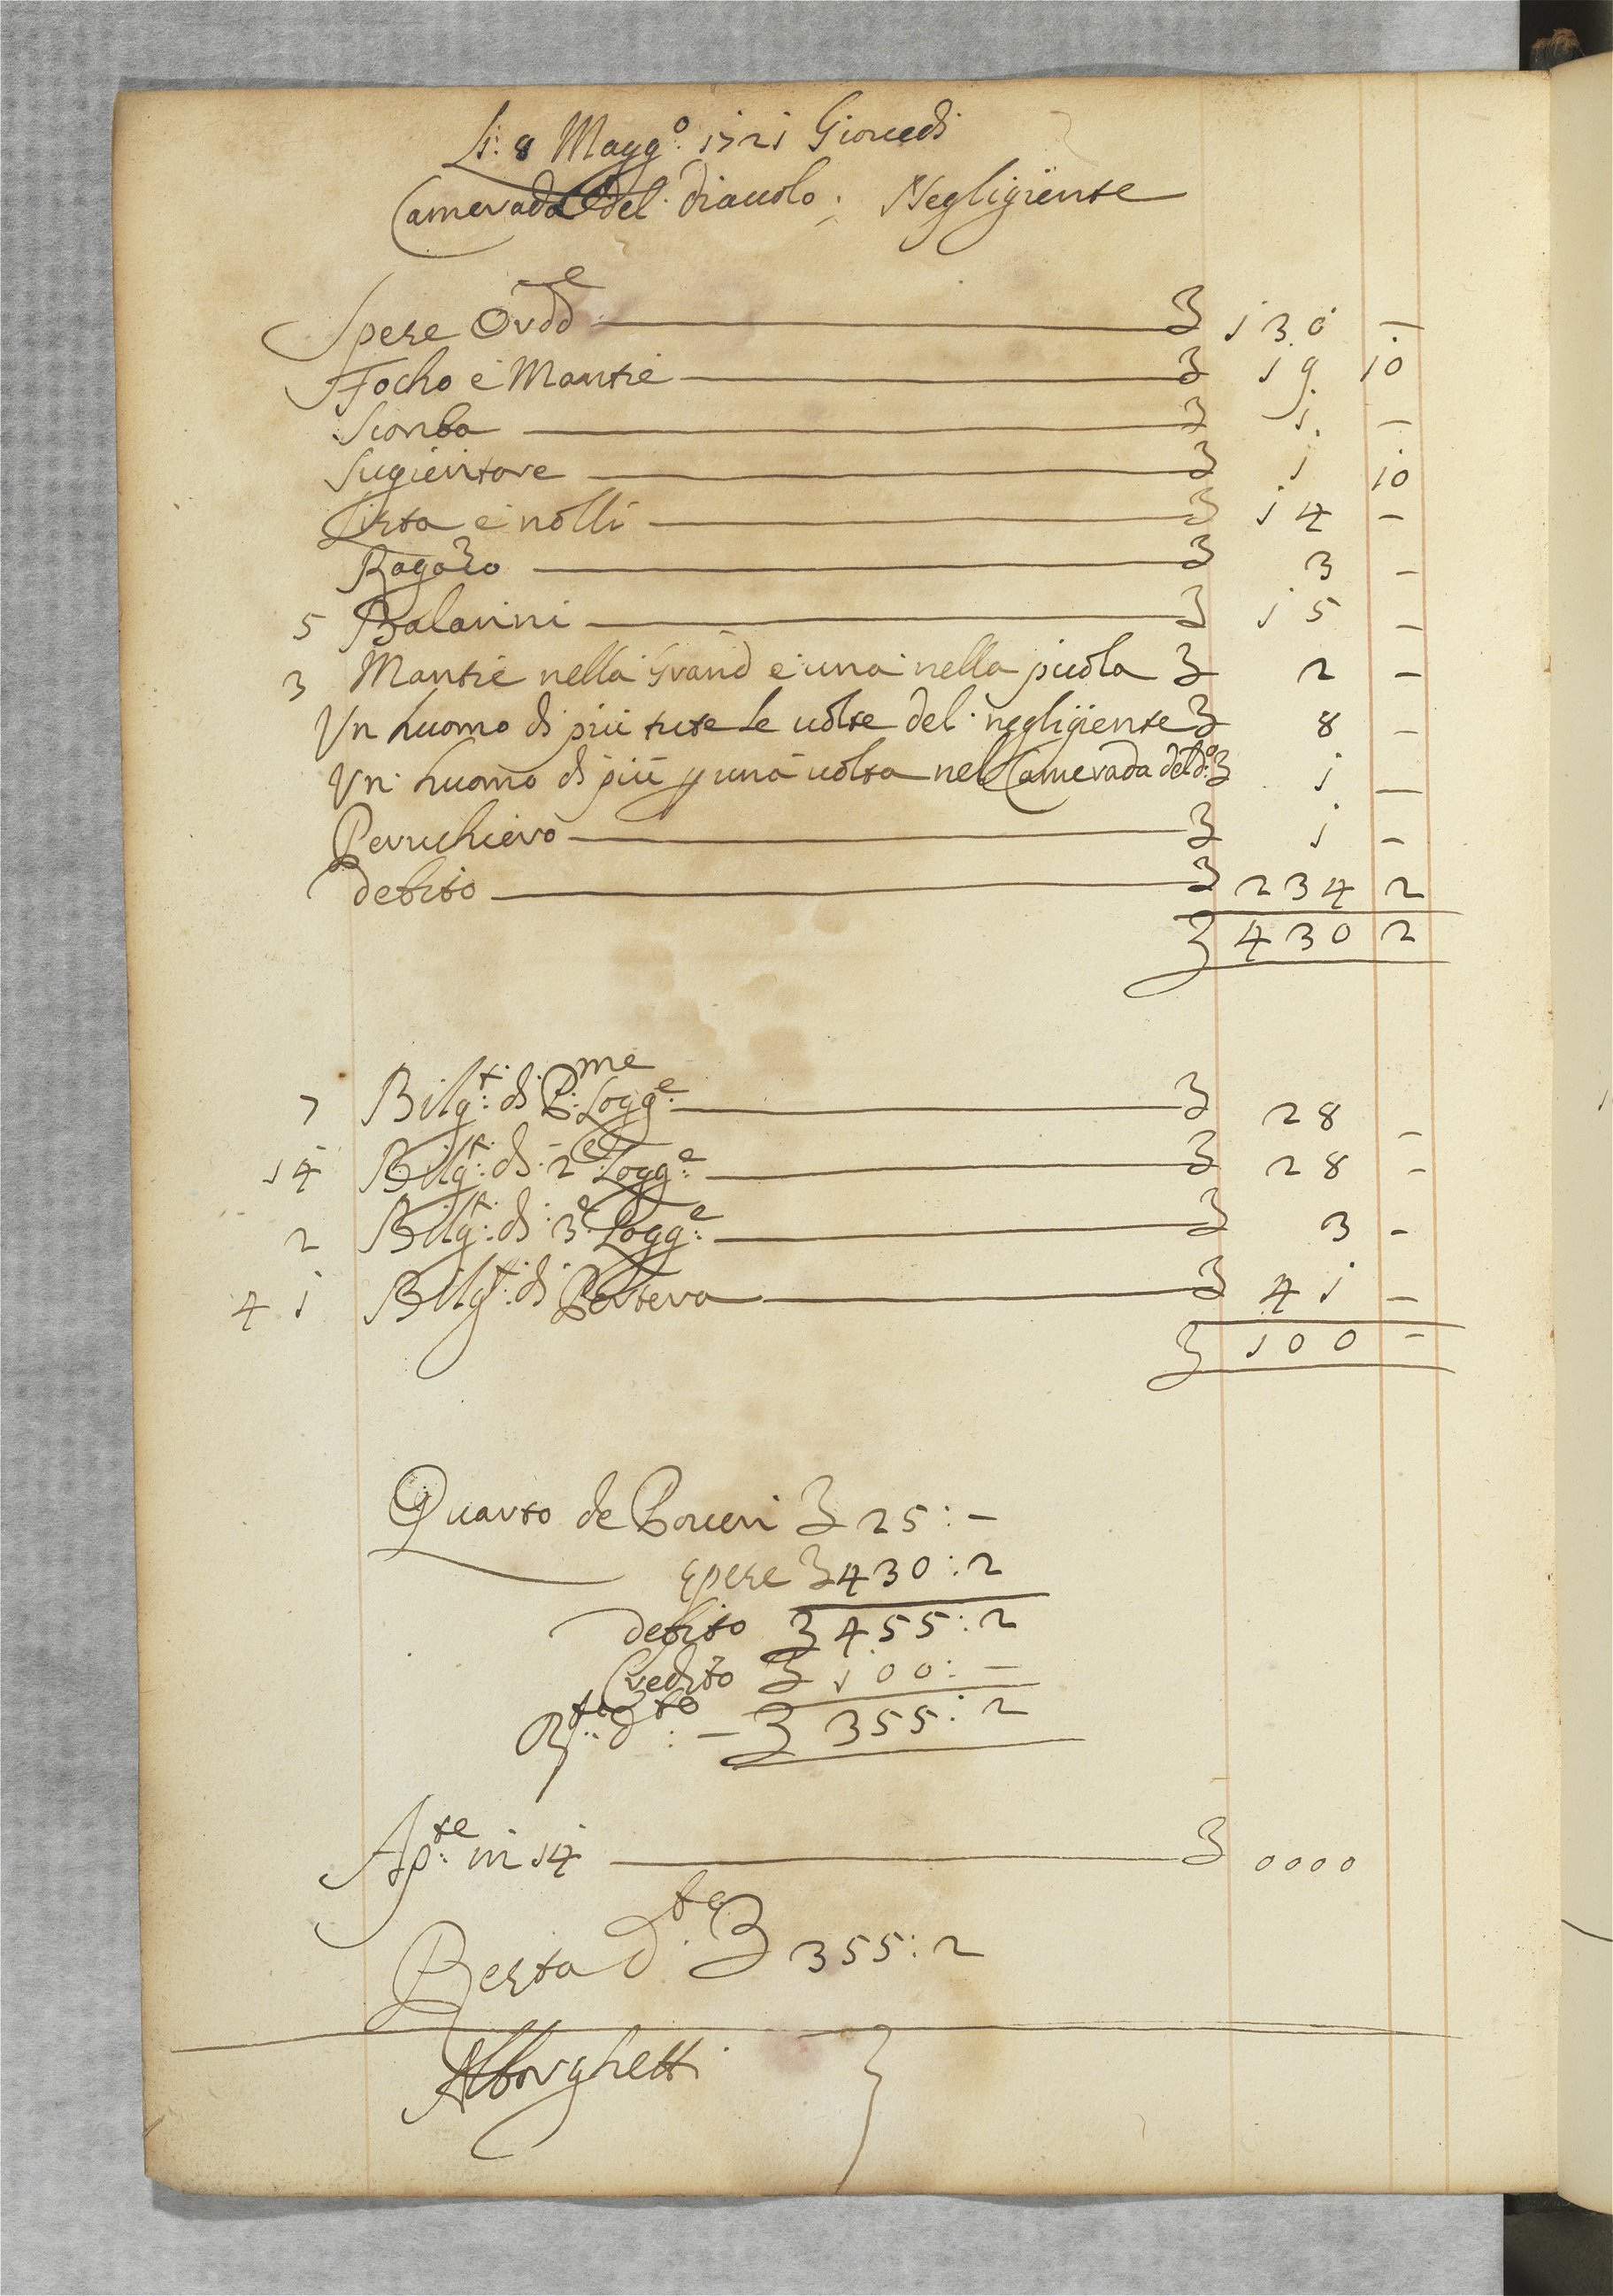 Li: 8 Magg.o 1721 Giouedi
Camerada del diauolo: Negligiente
Spese Ordd.e ʒ 130 –
Focho e Mantie ʒ 19 10
Sionba ʒ 1 –
Sugieritore ʒ 1 10
Lista e nolli ʒ 14 –
Ragazo ʒ 3 –
5 Balarini ʒ 15 –
3 Mantie nella Grand e una nella picola ʒ 2 –
Vn huomo di più tute le uolte del negligiente ʒ 8 –
Vn huomo di più p una uolta nel Camerada del d:o ʒ 1 –
Peruchiero ʒ 1 –
debito ʒ 234 2
ʒ 430 2
7 Bilg.t: di P:me Logg:e ʒ 28 –
14 Bilg.t: di 2.e Logg:e ʒ 28 –
2 Bilg.t: di 3.e Logg:e ʒ 3 –
41 Bilg.t: di Portera ʒ 41 –
ʒ 100 –
Quarto de Poueri ʒ 25: –
spese ʒ 430: 2
debito ʒ 455: 2
Credito ʒ 100: –
d:to – ʒ 355: 2
Ap:te in 14 ʒ 0000
Resta d:to ʒ 355: 2
Alborghetti